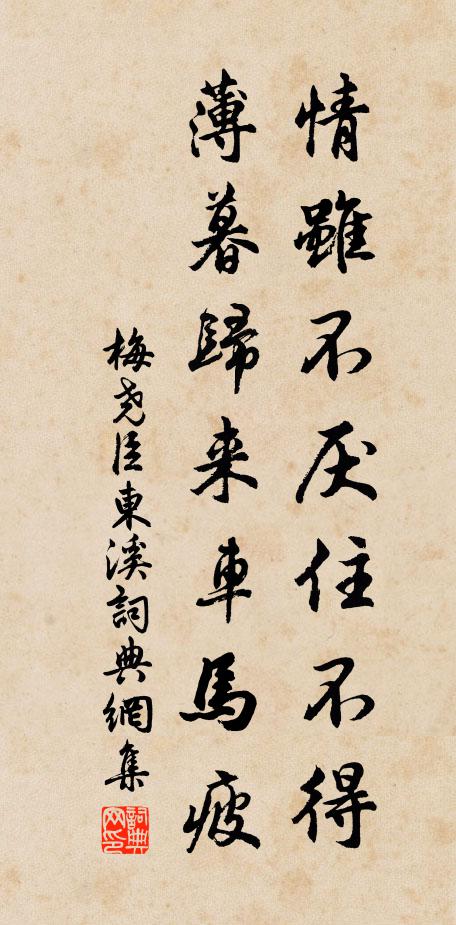 情雖不厌住不得
薄暮歸来車馬疲
梅尧臣東溪詞典網集
詞典
网印